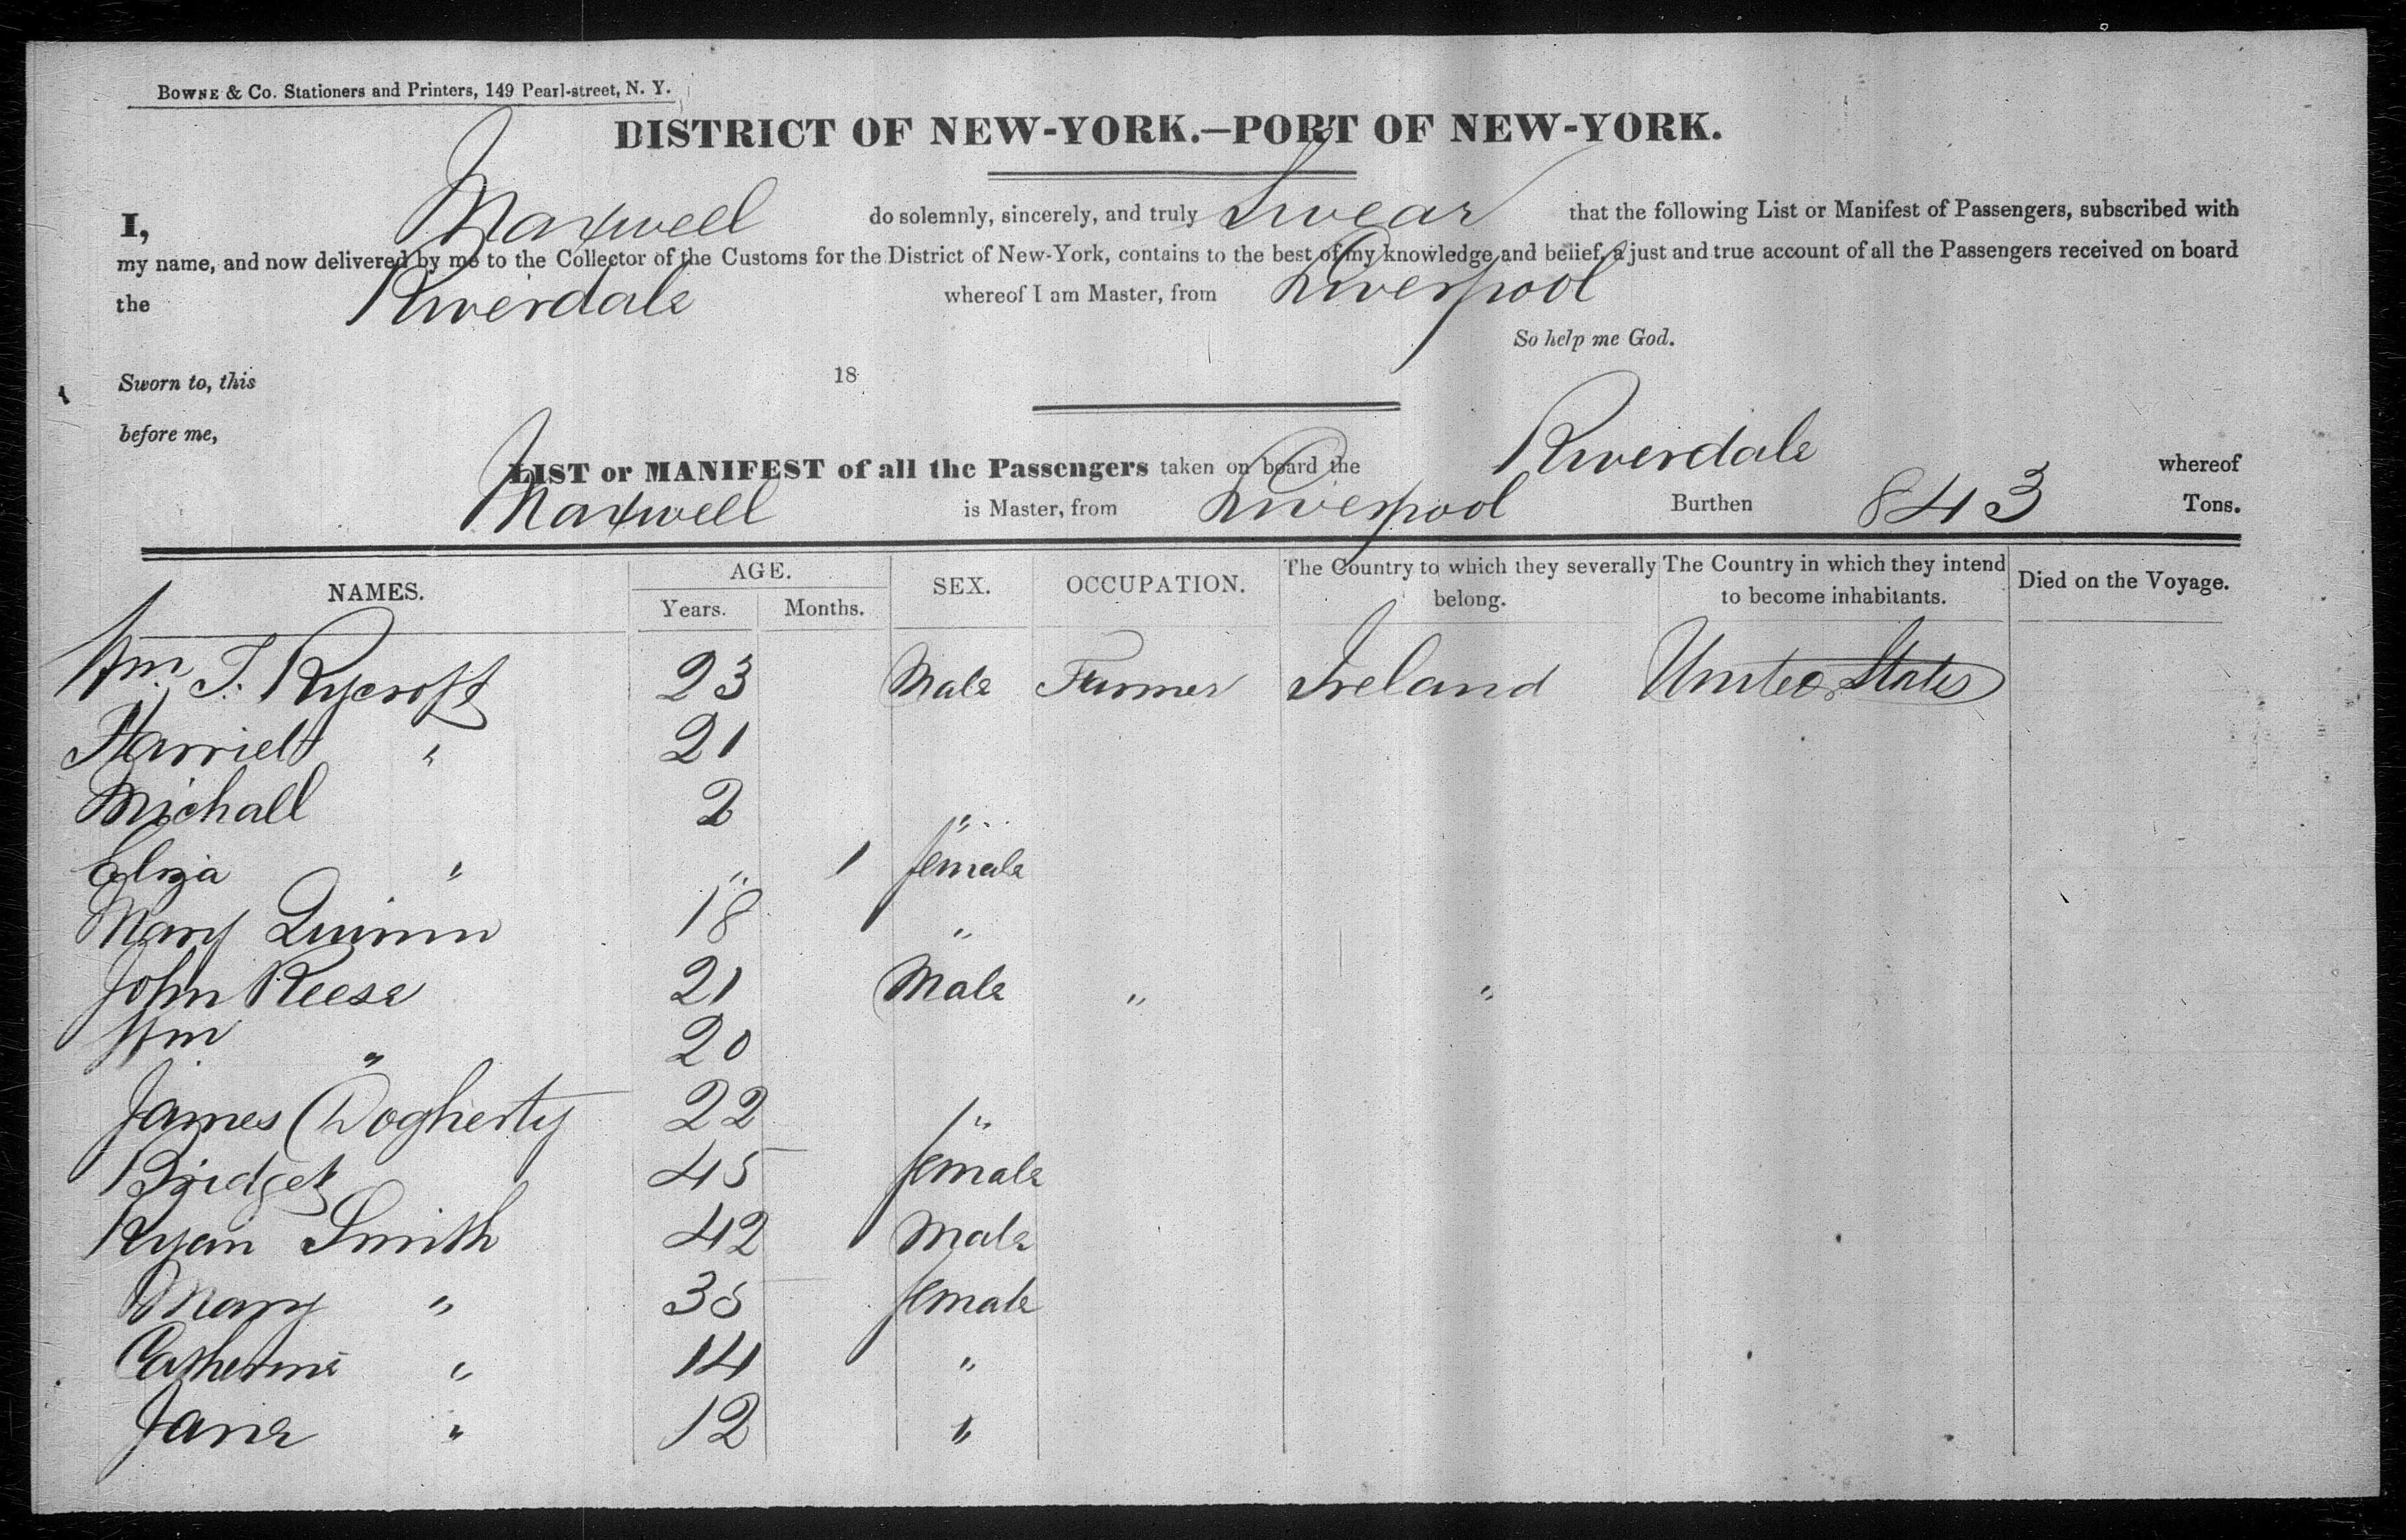 BOWNE & Co. Stationers and Printers, 149 Pearl-street, N. Y.
DISTRICT OF NEW-YORK.—PORT OF NEW-YORK.
I, Maxwell do solemnly, sincerely, and truly Swear that the following List or Manifest of Passengers, subscribed with
my name, and now delivered by me to the Collector of the Customs for the District of New-York, contains to the best of my knowledge and belief, a just and true account of all the Passengers received on board
the Riverdale whereof I am Master, from Liverpool
So help me God.
Sworn to, this 18
before me,
LIST or MANIFEST of all the Passengers taken on board the Riverdale whereof
Maxwell is Master, from Liverpool Burthen 843 Tons.
NAMES. AGE. SEX. OCCUPATION. The Country to which they severally belong. The Country in which they intend to become inhabitants. Died on the Voyage.
Years. Months.
Wm. T. Rycroft 23 Male Farmer Ireland United States
Harriett " 21
Michall 2 "
Eliza " " 1 female
Mary Quinn 18 "
John Reese 21 Male " "
Wm " 20
James Dogherty 22 "
Bridget 45 female
Ryan Smith 42 Male
Mary " 35 female
Catherine " 14 "
Jane " 12 "